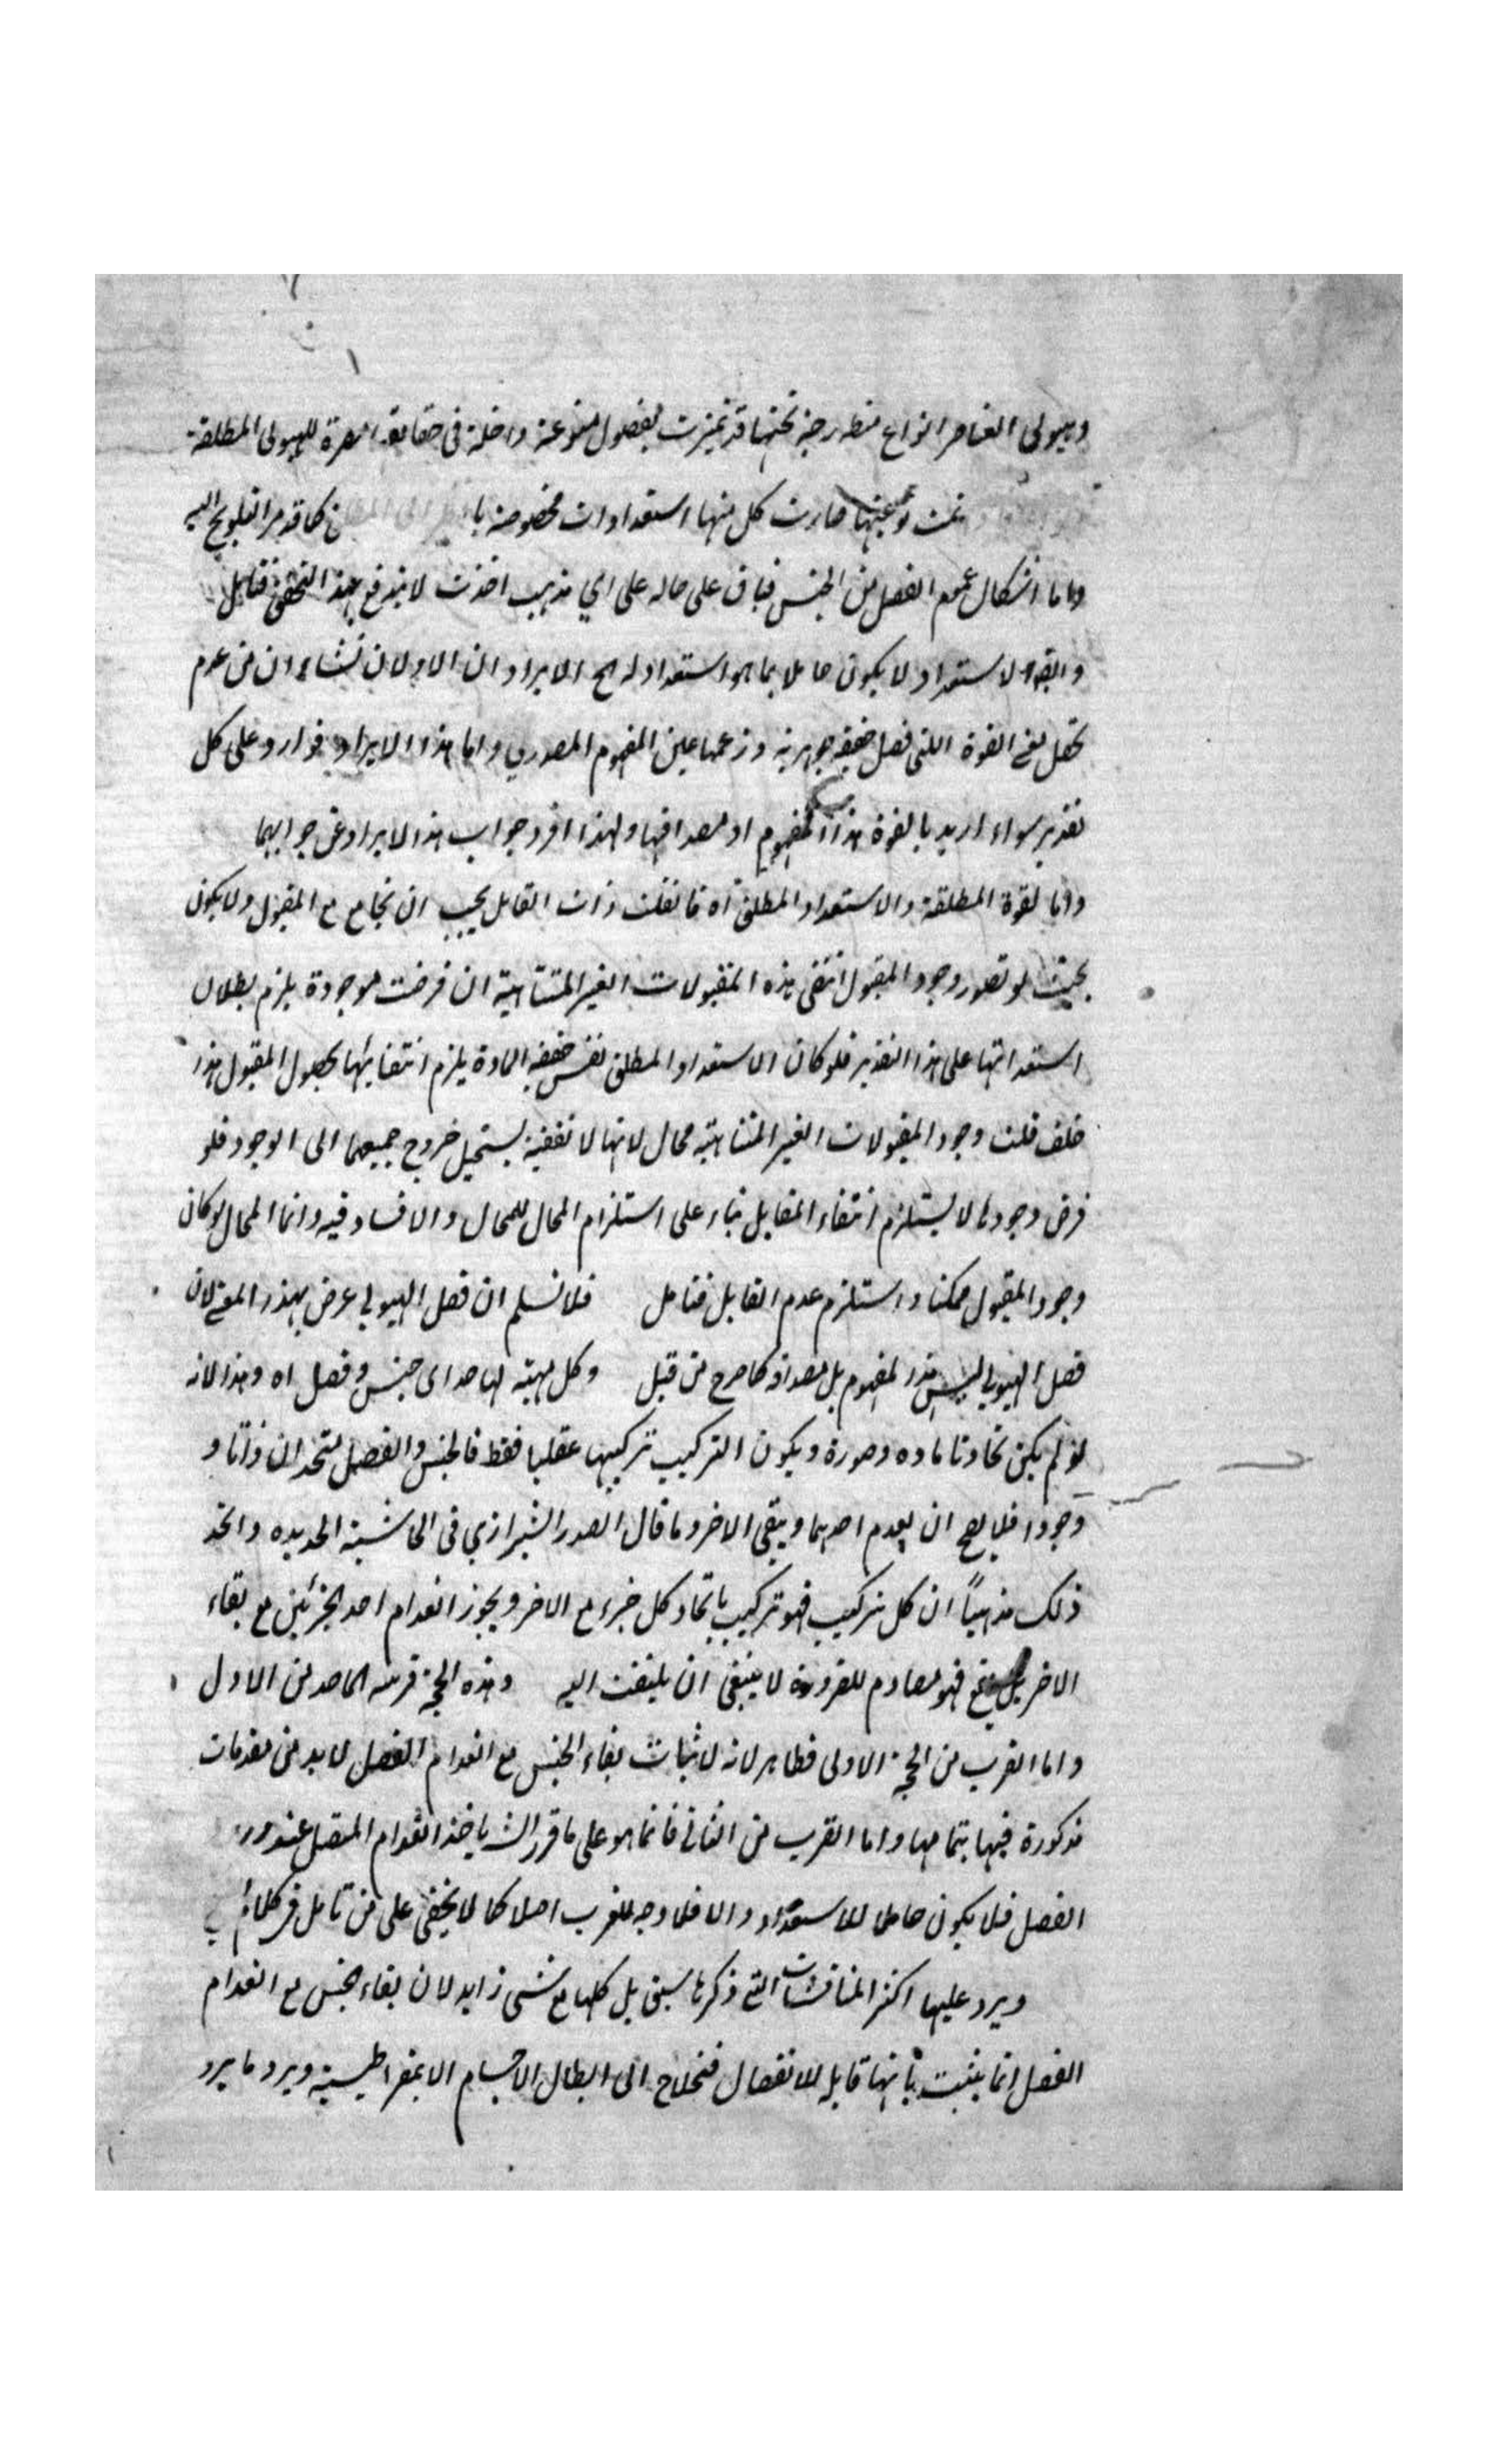 وهيولى العناصر انواع مندرجة تحتها قد تميزت بفصول منوعة داخلة فى حقايق للهيولى المطلقة
تمت نوعيتها صارت كل منها استعدادات مخصوصة كما قد مر التلويح اليه
واما اشكال عموم الفصل من الجنس فباق على حاله على اي مذهب اخذت لا يندفع بهذا التحقيق فتامل
والقوة الاستعداد لا يكون حاملا بما هو استعداد له الخ الايراد ان الاولان نشاء ان من عدم
تحصل معنى القوة اللتى فصل حقيقة جوهرية وزعمها عين المفهوم المصدري واما هذا الايراد فوارد على كل
تقدير سواء اريد بالقوة هذا المفهوم او مصداقها ولهذا افرد جواب هذا الايراد عن جوابهما
واما القوة المطلقة والاستعداد المطلق آه فان قلت ذات القابل يجب ان تجامع مع المقبول ولا يكون
بحيث لو تصور وجود المقبول انتفى هذه المقبولات الغير المتناهية ان فرضت موجودة يلزم بطلان
استعداداتها على هذا التقدير فلو كان الاستعداد المطلق نفس حقيقة المادة يلزم انتفائها بحصول المقبول هذا
خلف قلت وجود المقبولات الغير المتناهية محال لانها لا تقفية يستحيل خروج جميعها الى الوجود فلو
فرض وجودها لا يستلزم انتفاء القابل بناء على استلزام المحال للمحال ولا فساد فيه وانما المحال لو كان
وجود المقبول ممكنا واستلزم عدم القابل فتامل فلا نسلم ان فصل الهيولى عرض بهذا المعنى لان
فصل الهيولى ليس هذا المفهوم بل مصداقه كما صرح من قبل وكل مهية لها حد اى جنس وفصل اه وهذا لانه
لو لم يكن تحاذتا مادة وصورة ويكون التركيب تركيبها عقليا فقط فالجنس والفصل متحدان ذاتا و
وجودا فلا يصح ان يعدم احدهما ويبقى الاخر وما قال الصدر الشيرازي فى الحاشية الجديده واتخذ
ذلك مذهباً ان كل تركيب فهو تركيب باتحاد كل جزء مع الاخر ويجوز انعدام احد الجزئين مع بقاء
الاخر فهو مصادم للضرورة لا ينبغى ان يلتفت اليه وهذه الحجة قريبة الماخذ من الاول
واما القرب من الحجة الاولى فظاهر لانه لاثبات بقاء الجنس مع انعدام الفصل لابد من مقدمات
مذكورة فيها بتمامها واما القرب من الثانى فانما هو على ما قرر الش ياخذ انعدام المتصل عند ورود
الفصل فلا يكون حاملا للاستعداد والا فلا وجه للقرب اصلا كما لا يخفى على من تامل فى كلامه
ويرد عليها اكثر المناقشات التى ذكرنا سبق بل كلها مع شىء زايد لان بقاء الجنس مع انعدام
الفصل انما يثبت بانها قابلة للانفصال فتحتاج الى ابطال الاجسام الذيمقراطيسية ويرد ما يرد